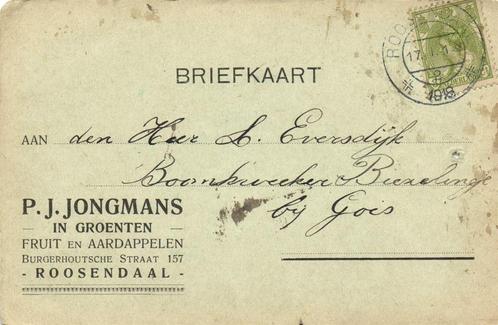 BRIEFKAART
ROO
17
8
1918
AAN den Heer A. Eversdijk
Boomkweeker Biezelinge
bij Goes
P. J. JONGMANS
IN GROENTEN
FRUIT EN AARDAPPELEN
BURGERHOUTSCHE STRAAT 157
- ROOSENDAAL -